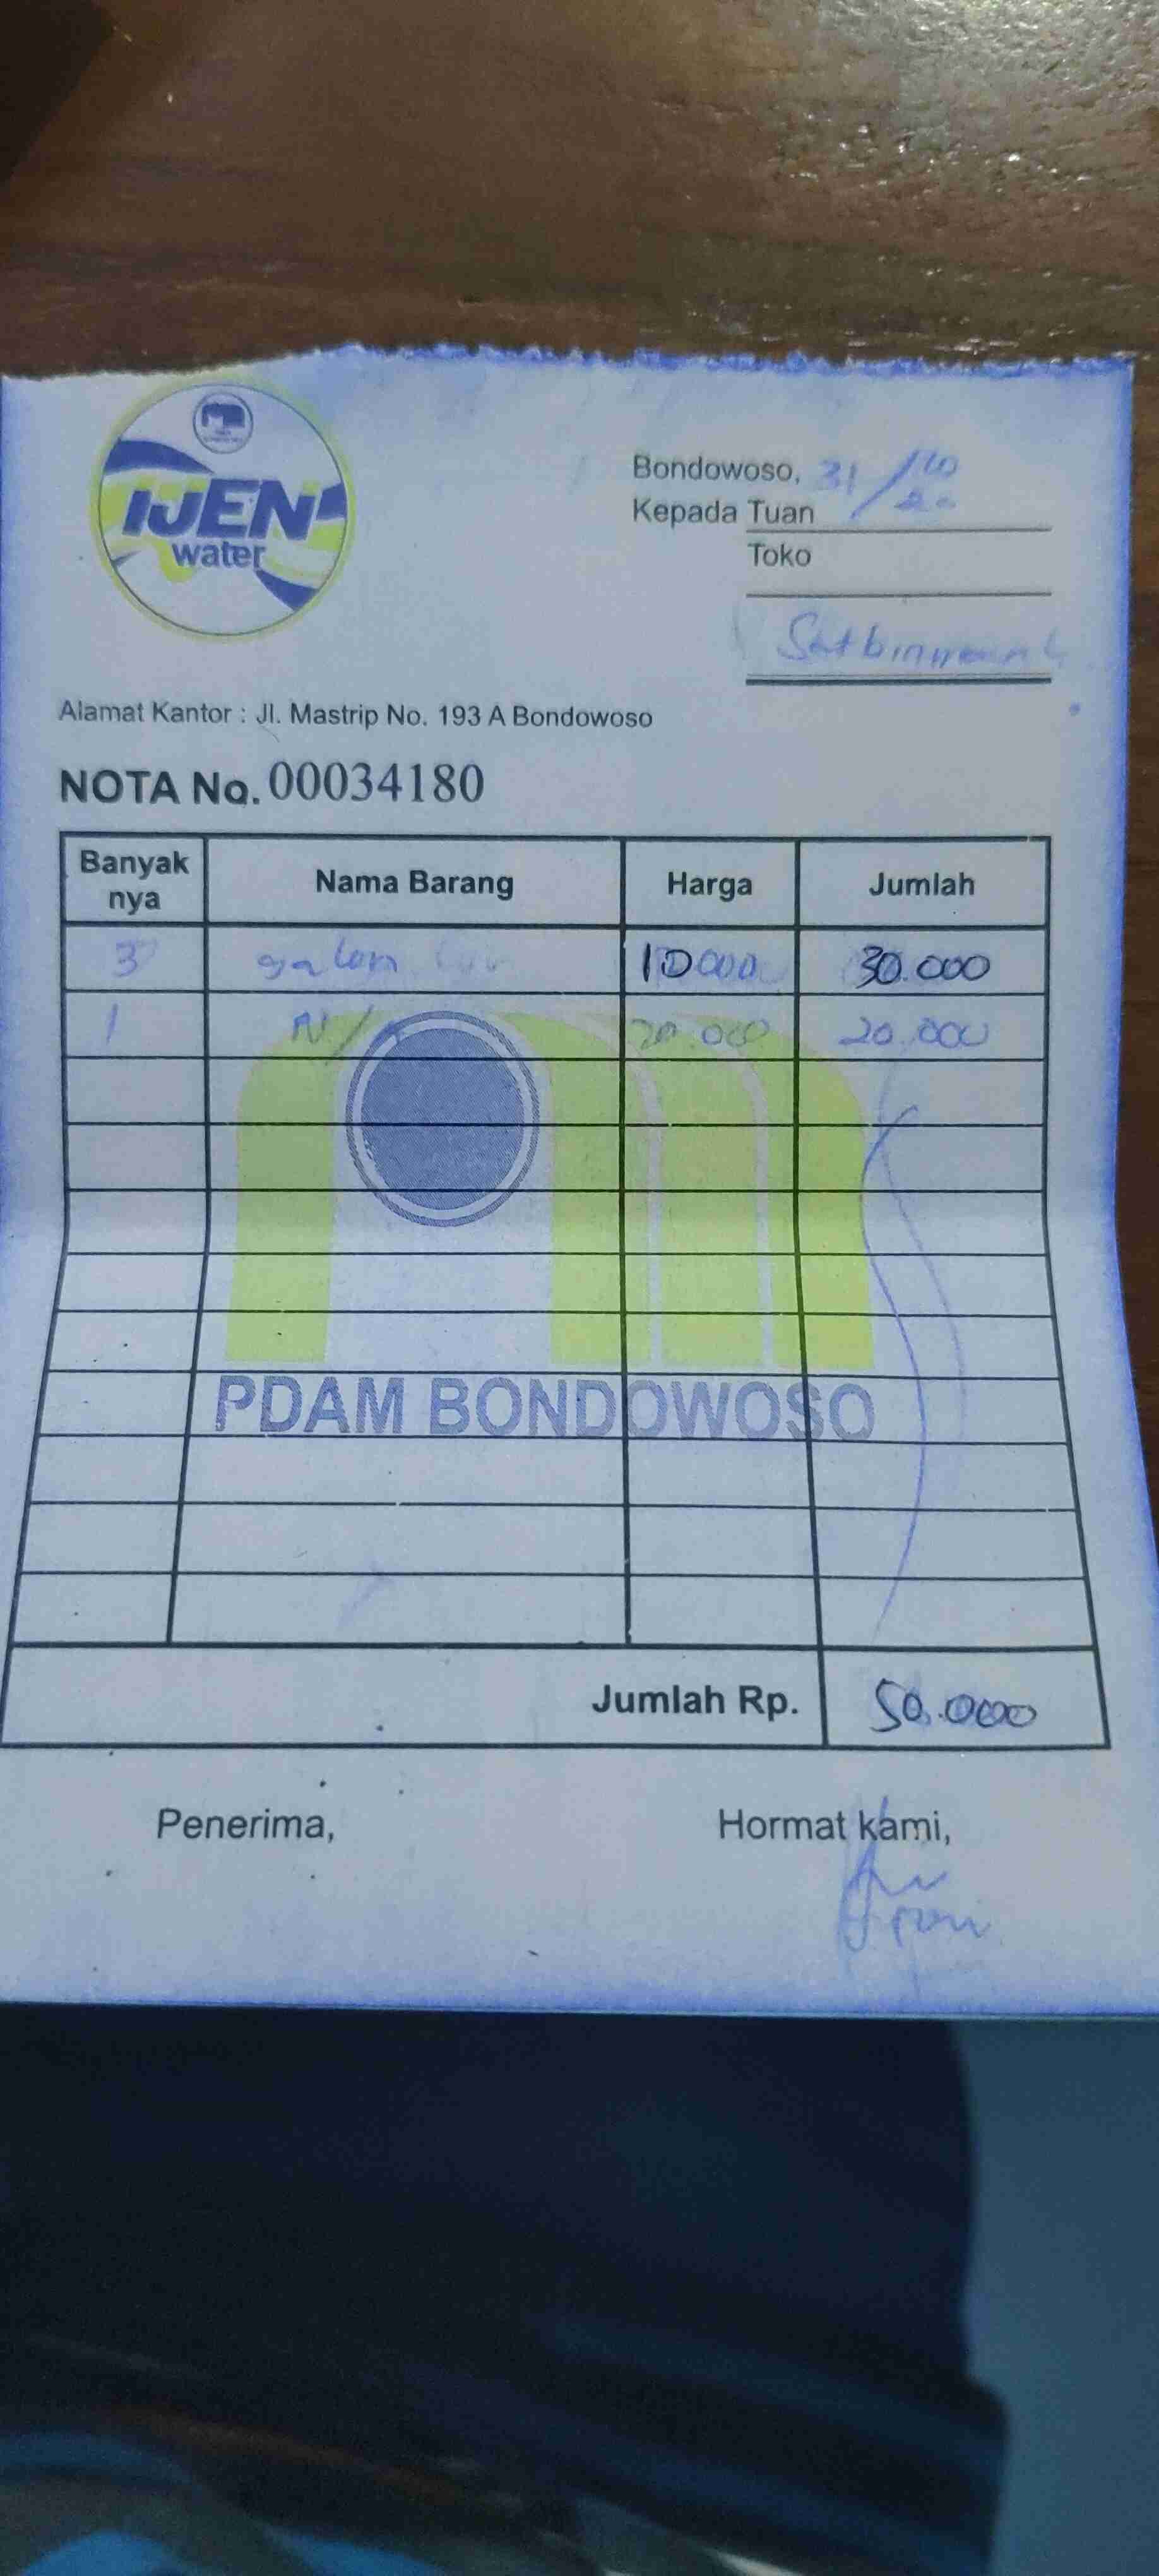 IJEN
water
Bondowoso, 31/10
Kepada Tuan
Toko
Alamat Kantor : Jl. Mastrip No. 193 A Bondowoso
NOTA No. 00034180
Banyak nya Nama Barang Harga Jumlah
3 galon 10000 30.000
1 N/ 20.000 20.000
PDAM BONDOWOSO
Jumlah Rp. 50.000
Penerima, Hormat kami,